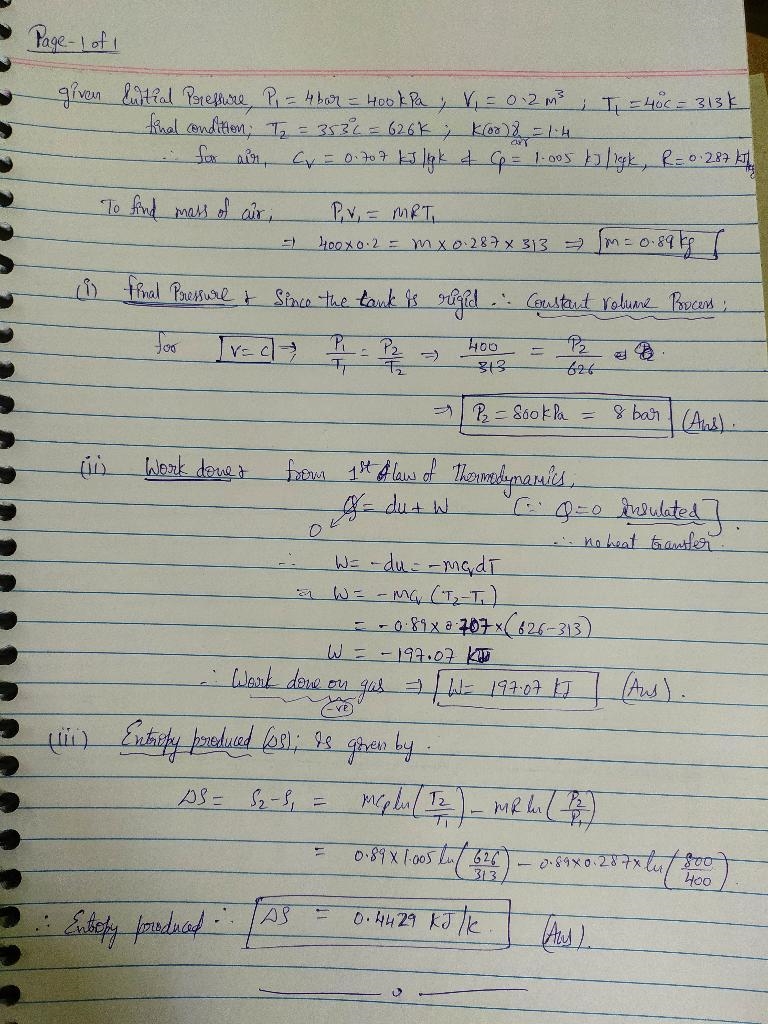 Page-1 of 1
given Initial Pressure, P₁ = 4 bar = 400 kPa ; V₁ = 0.2 m³ ; T₁ = 40°C = 313 K
final condition; T₂ = 353°C = 626K ; K(or)γ air = 1.4
∴ for air, Cv = 0.707 kJ/kgk & Cp = 1.005 kJ/kgk, R = 0.287 kJ/kg
To find mass of air, P₁V₁ = MRT₁
⇒ 400×0.2 = m × 0.287 × 313 ⇒ m = 0.89 kg
(i) final Pressure : Since the tank is rigid ∴ Constant volume Process ;
for V=C ⇒ P₁/T₁ = P₂/T₂ ⇒ 400/313 = P₂/626
⇒ P₂ = 800 kPa = 8 bar (Ans).
(ii) Work done : from 1st law of Thermodynamics,
Q = du + W (∵ Q=0 Insulated].
0 ∴ no heat transfer.
∴ W = -du = -mcvdT
W = -mcv (T₂-T₁)
= -0.89 × 0.707 × (626-313)
W = -197.07 kJ
∴ Work done on gas ⇒ W = 197.07 kJ (Ans).
(-ve)
(iii) Entropy produced (ΔS); is given by.
ΔS = S₂-S₁ = mcp ln (T₂/T₁) - mR ln (P₂/P₁)
= 0.89 × 1.005 ln (626/313) - 0.89×0.287× ln (800/400).
∴ Entropy produced ∴ ΔS = 0.4429 kJ/k. (Ans).